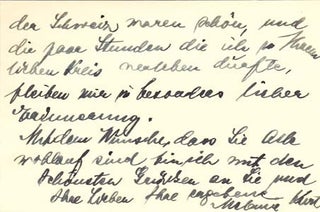 der Schweiz waren schön, und
die paar Stunden die ich in Ihrem
lieben Kreis verleben durfte,
bleiben mir in besonders lieber
Erinnerung.
Mit dem Wunsche, dass Sie Alle
wohlauf sind bin ich mit den
schönsten Grüssen an Sie und
Ihre Lieben Ihre ergebene